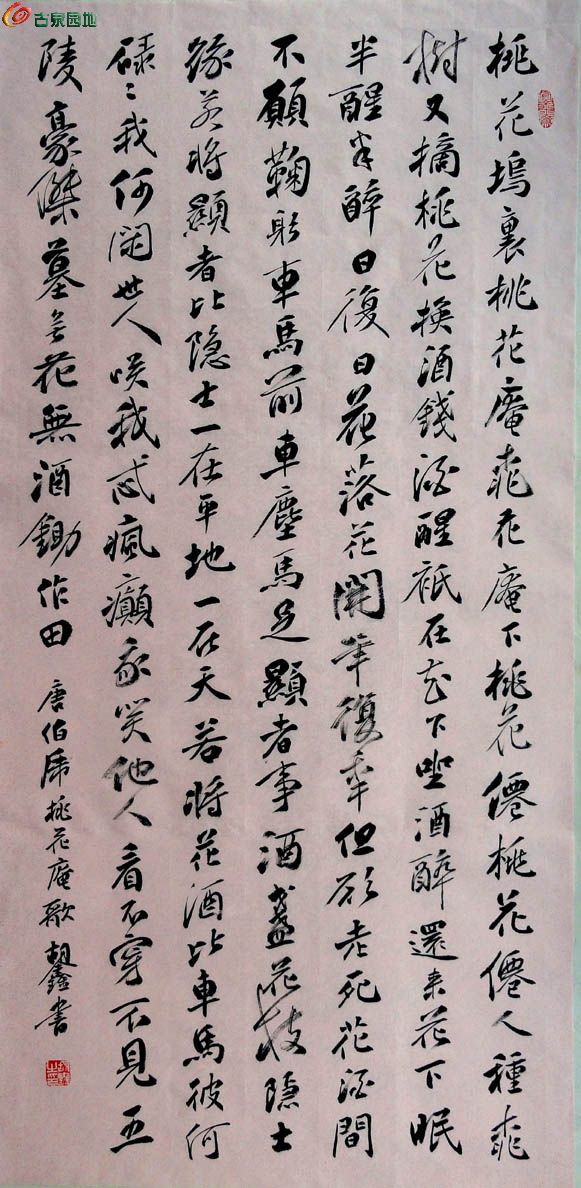 古泉园地
桃花塢裏桃花庵桃花庵下桃花僊桃花僊人種桃
樹又摘桃花換酒錢酒醒祇在花下坐酒醉還来花下眠
半醒半醉日復日花落花開年復年但願老死花酒間
不願鞠躬車馬前車塵馬足顯者事酒盞花枝隱士
緣若將顯者比隐士一在平地一在天若將花酒比車馬彼何
碌々我何閑世人咲我忒瘋癲我笑他人看不穿不見五
陵豪傑墓無花無酒鋤作田 唐伯虎桃花庵歌 胡鑫書